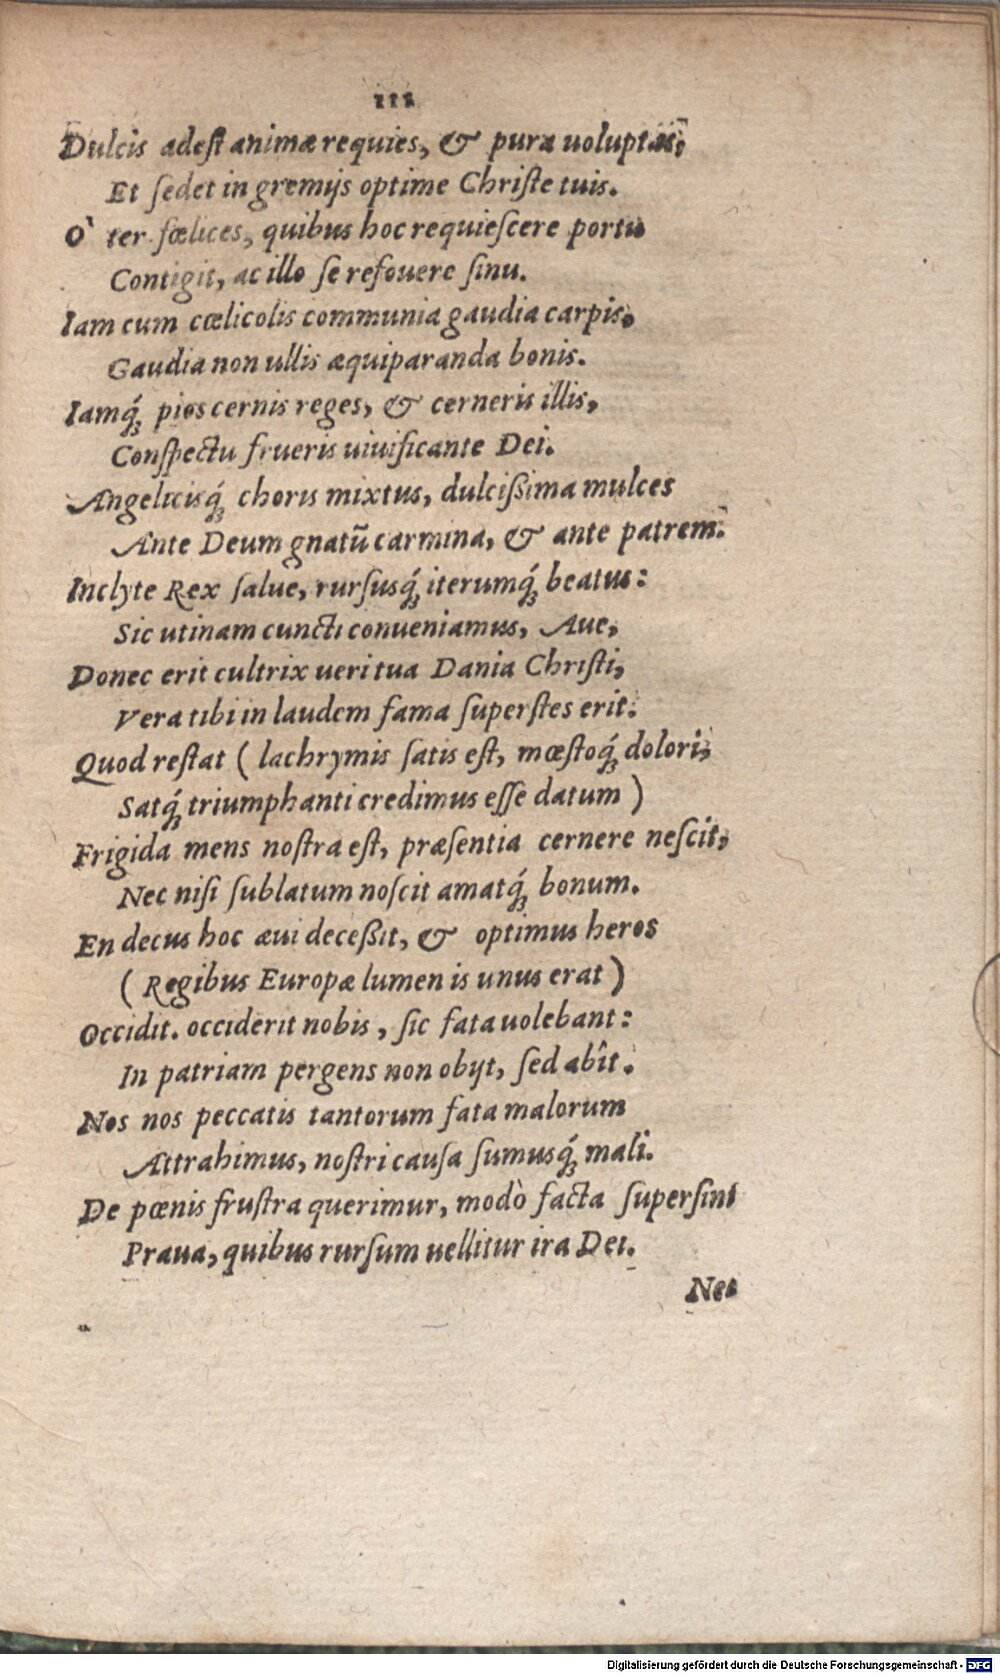 111
Dulcis adeſt animæ requies, & pura uoluptas,
Et ſedet in gremijs optime Chriſte tuis.
O` ter fœlices, quibus hoc requieſcere portu
Contigit, ac illo ſe refouere ſinu.
Iam cum cœlicolis communia gaudia carpis,
Gaudia non ullis æquiparanda bonis.
Iamq́ꝫ pios cernis reges, & cerneris illis,
Conſpectu frueris uiuificante Dei.
Angelicisq́ꝫ choris mixtus, dulciſsima mulces
Ante Deum gnatū carmina, & ante patrem.
Inclyte Rex ſalue, rurſusq́ꝫ iterumq́ꝫ beatus:
Sic utinam cuncti conueniamus, Aue,
Donec erit cultrix ueri tua Dania Chriſti,
Vera tibi in laudem fama ſuperſtes erit.
Quod reſtat ( lachrymis ſatis eſt, mœſtoq́ꝫ dolori,
Satq́ꝫ triumphanti credimus eſſe datum )
Frigida mens noſtra eſt, præſentia cernere neſcit,
Nec niſi ſublatum noſcit amatq́ꝫ bonum.
En decus hoc æui deceßit, & optimus heros
( Regibus Europæ lumen is unus erat )
Occidit. occiderit nobis, ſic fata uolebant:
In patriam pergens non obijt, ſed abît.
Nos nos peccatis tantorum fata malorum
Attrahimus, noſtri cauſa ſumusq́ꝫ mali.
De pœnis fruſtra querimur, modò facta ſuperſint
Praua, quibus rurſum uellitur ira Dei.
Nec
Digitalisierung gefördert durch die Deutsche Forschungsgemeinschaft - DFG